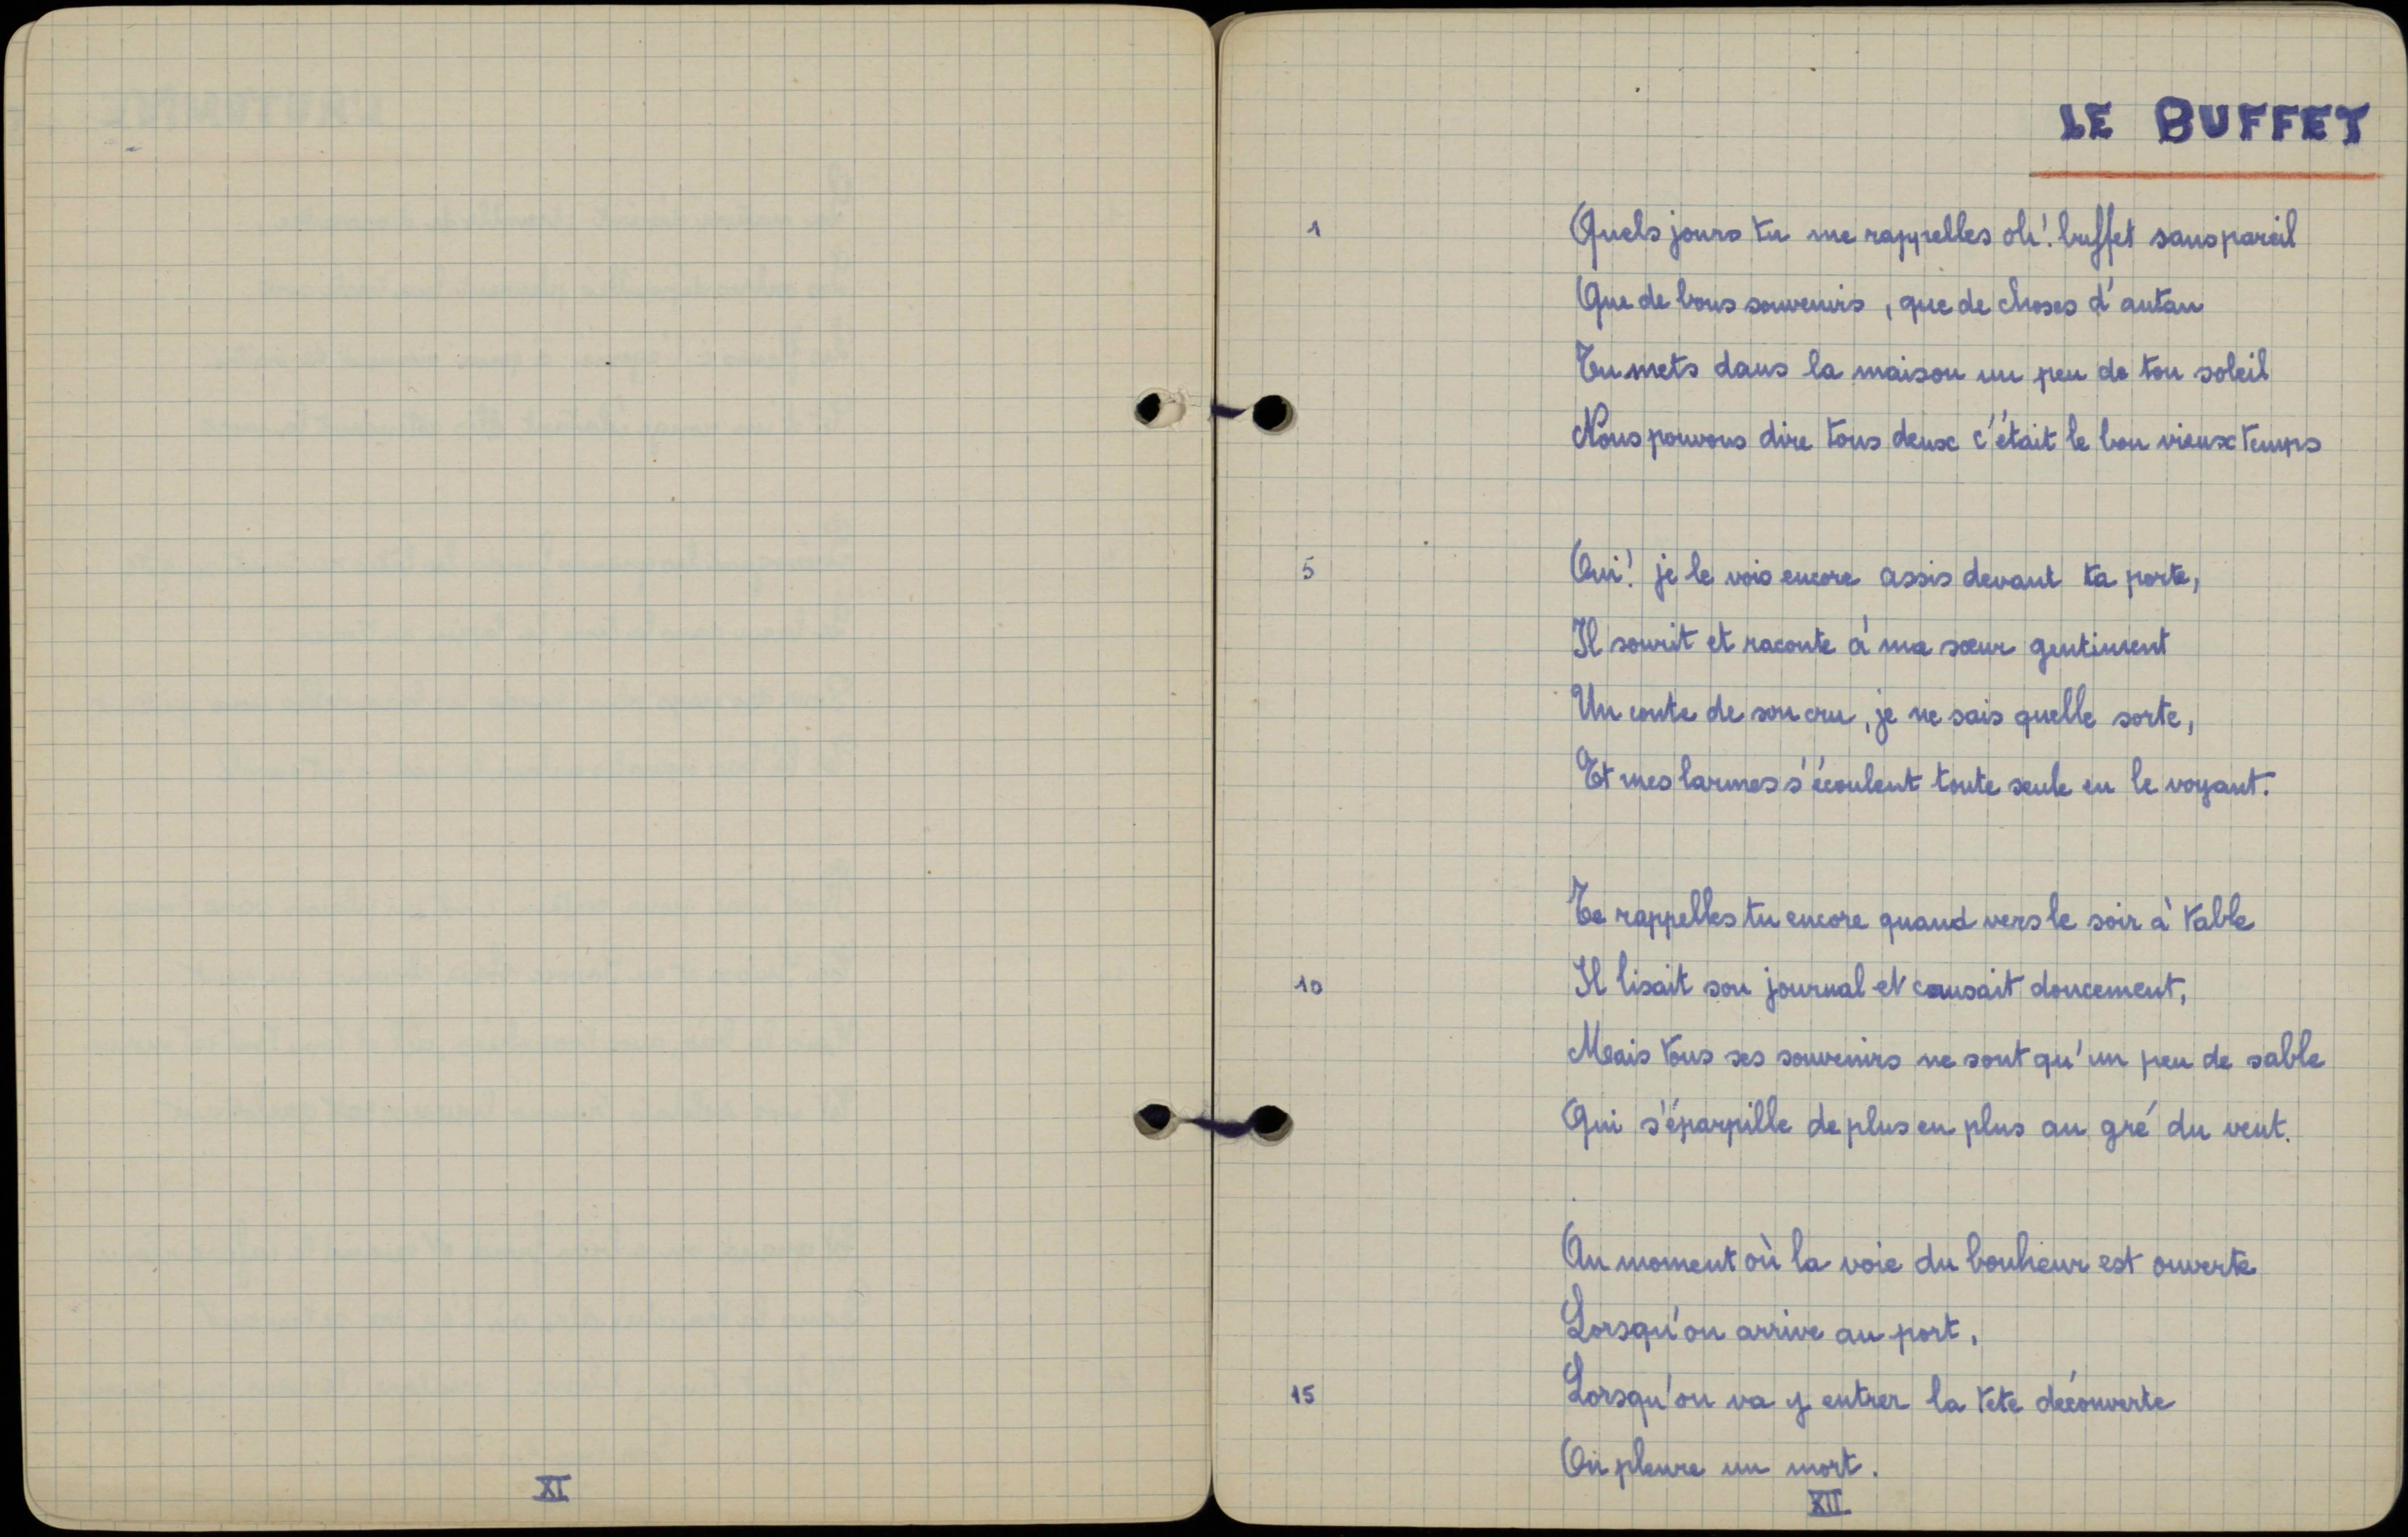 XI
LE BUFFET
1 Quels jours tu me rappelles oh! buffet sans pareil
Que de bons souvenirs, que de choses d'autan
Tu mets dans la maison un peu de ton soleil
Nous pouvons dire tous deux c'était le bon vieux temps
5 Oui! je le vois encore assis devant ta porte,
Il sourit et raconte à ma sœur gentiment
Un conte de son cru, je ne sais quelle sorte,
Et mes larmes s'écoulent toute seule en le voyant.
Te rappelles tu encore quand vers le soir à table
10 Il lisait son journal et causait doucement,
Mais tous ses souvenirs ne sont qu'un peu de sable
Qui s'éparpille de plus en plus au gré du vent.
Au moment où la voie du bonheur est ouverte
Lorsqu'on arrive au port,
15 Lorsqu'on va y entrer la tete découverte
On pleure un mort.
XII